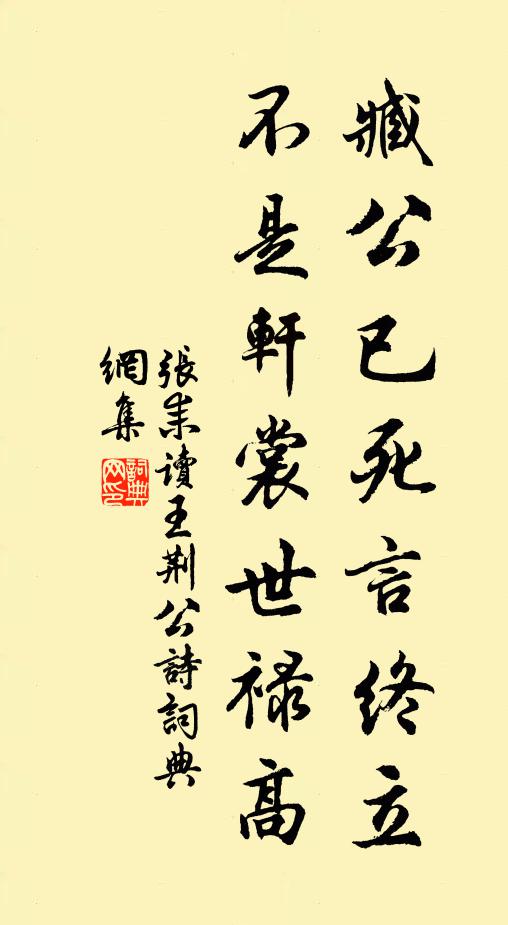 臧公已死言終立
不是軒裳世禄高
張耒讀王荆公詩詞典
網集
詞典
网印